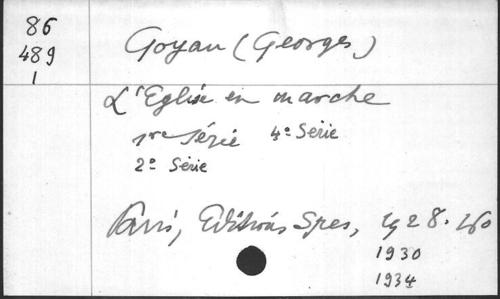 86
489
1
Goyau (Georges)
L'Eglise en marche
1re Série 4e Série
2e Série
Paris, Editions Spes, 1928. 
1930
1934